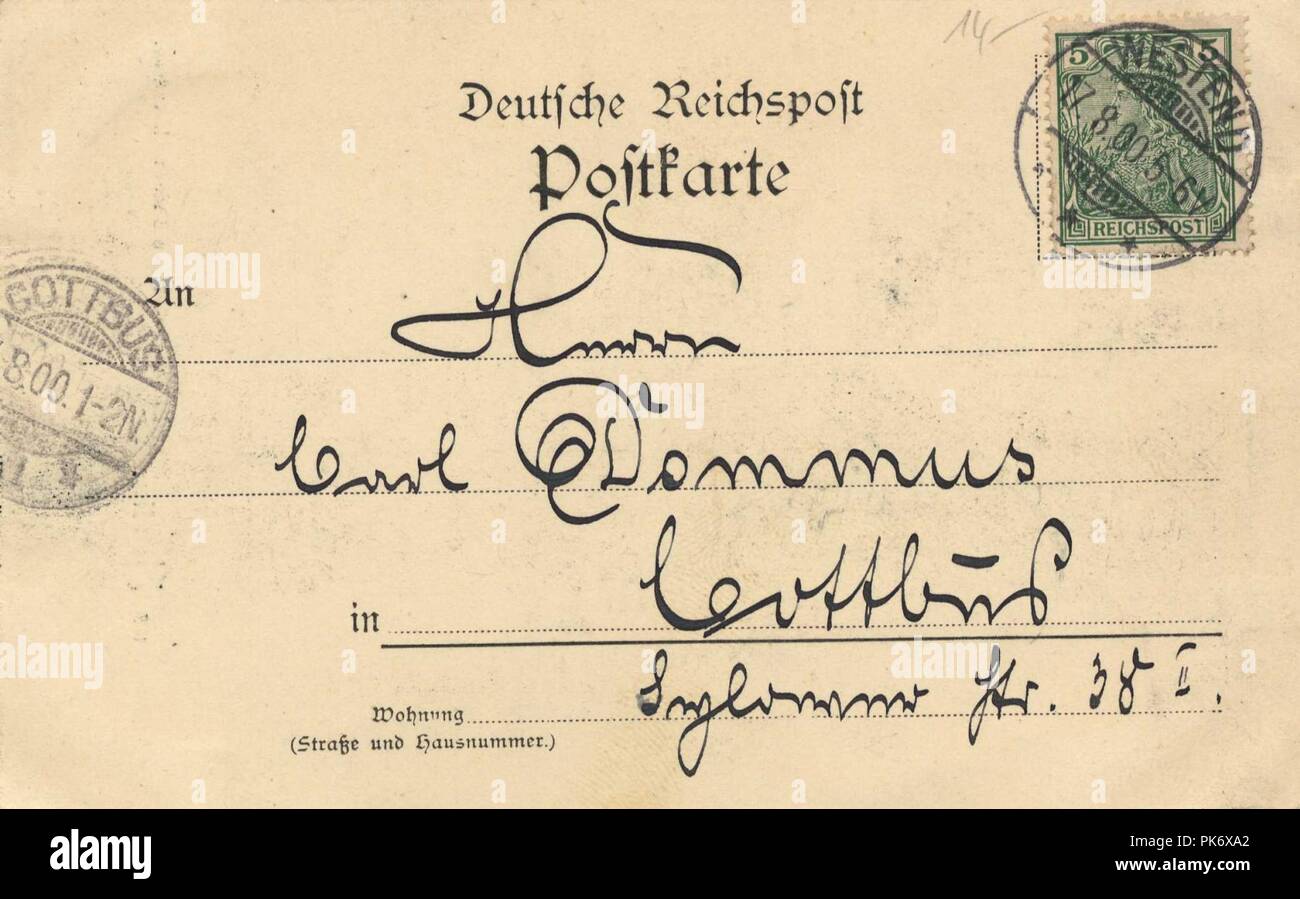 14-
Deutsche Reichspost
Postkarte
5 5
REICHSPOST
WESTEND
17.8.00.5-6N
An
COTTBUS
8.00.1-2N.
Herrn
Carl Dommus
in Cottbus
Wohnung Str. 38 II.
(Straße und Hausnummer.)
alamy
alamy
Image ID: PK6XA2
www.alamy.com